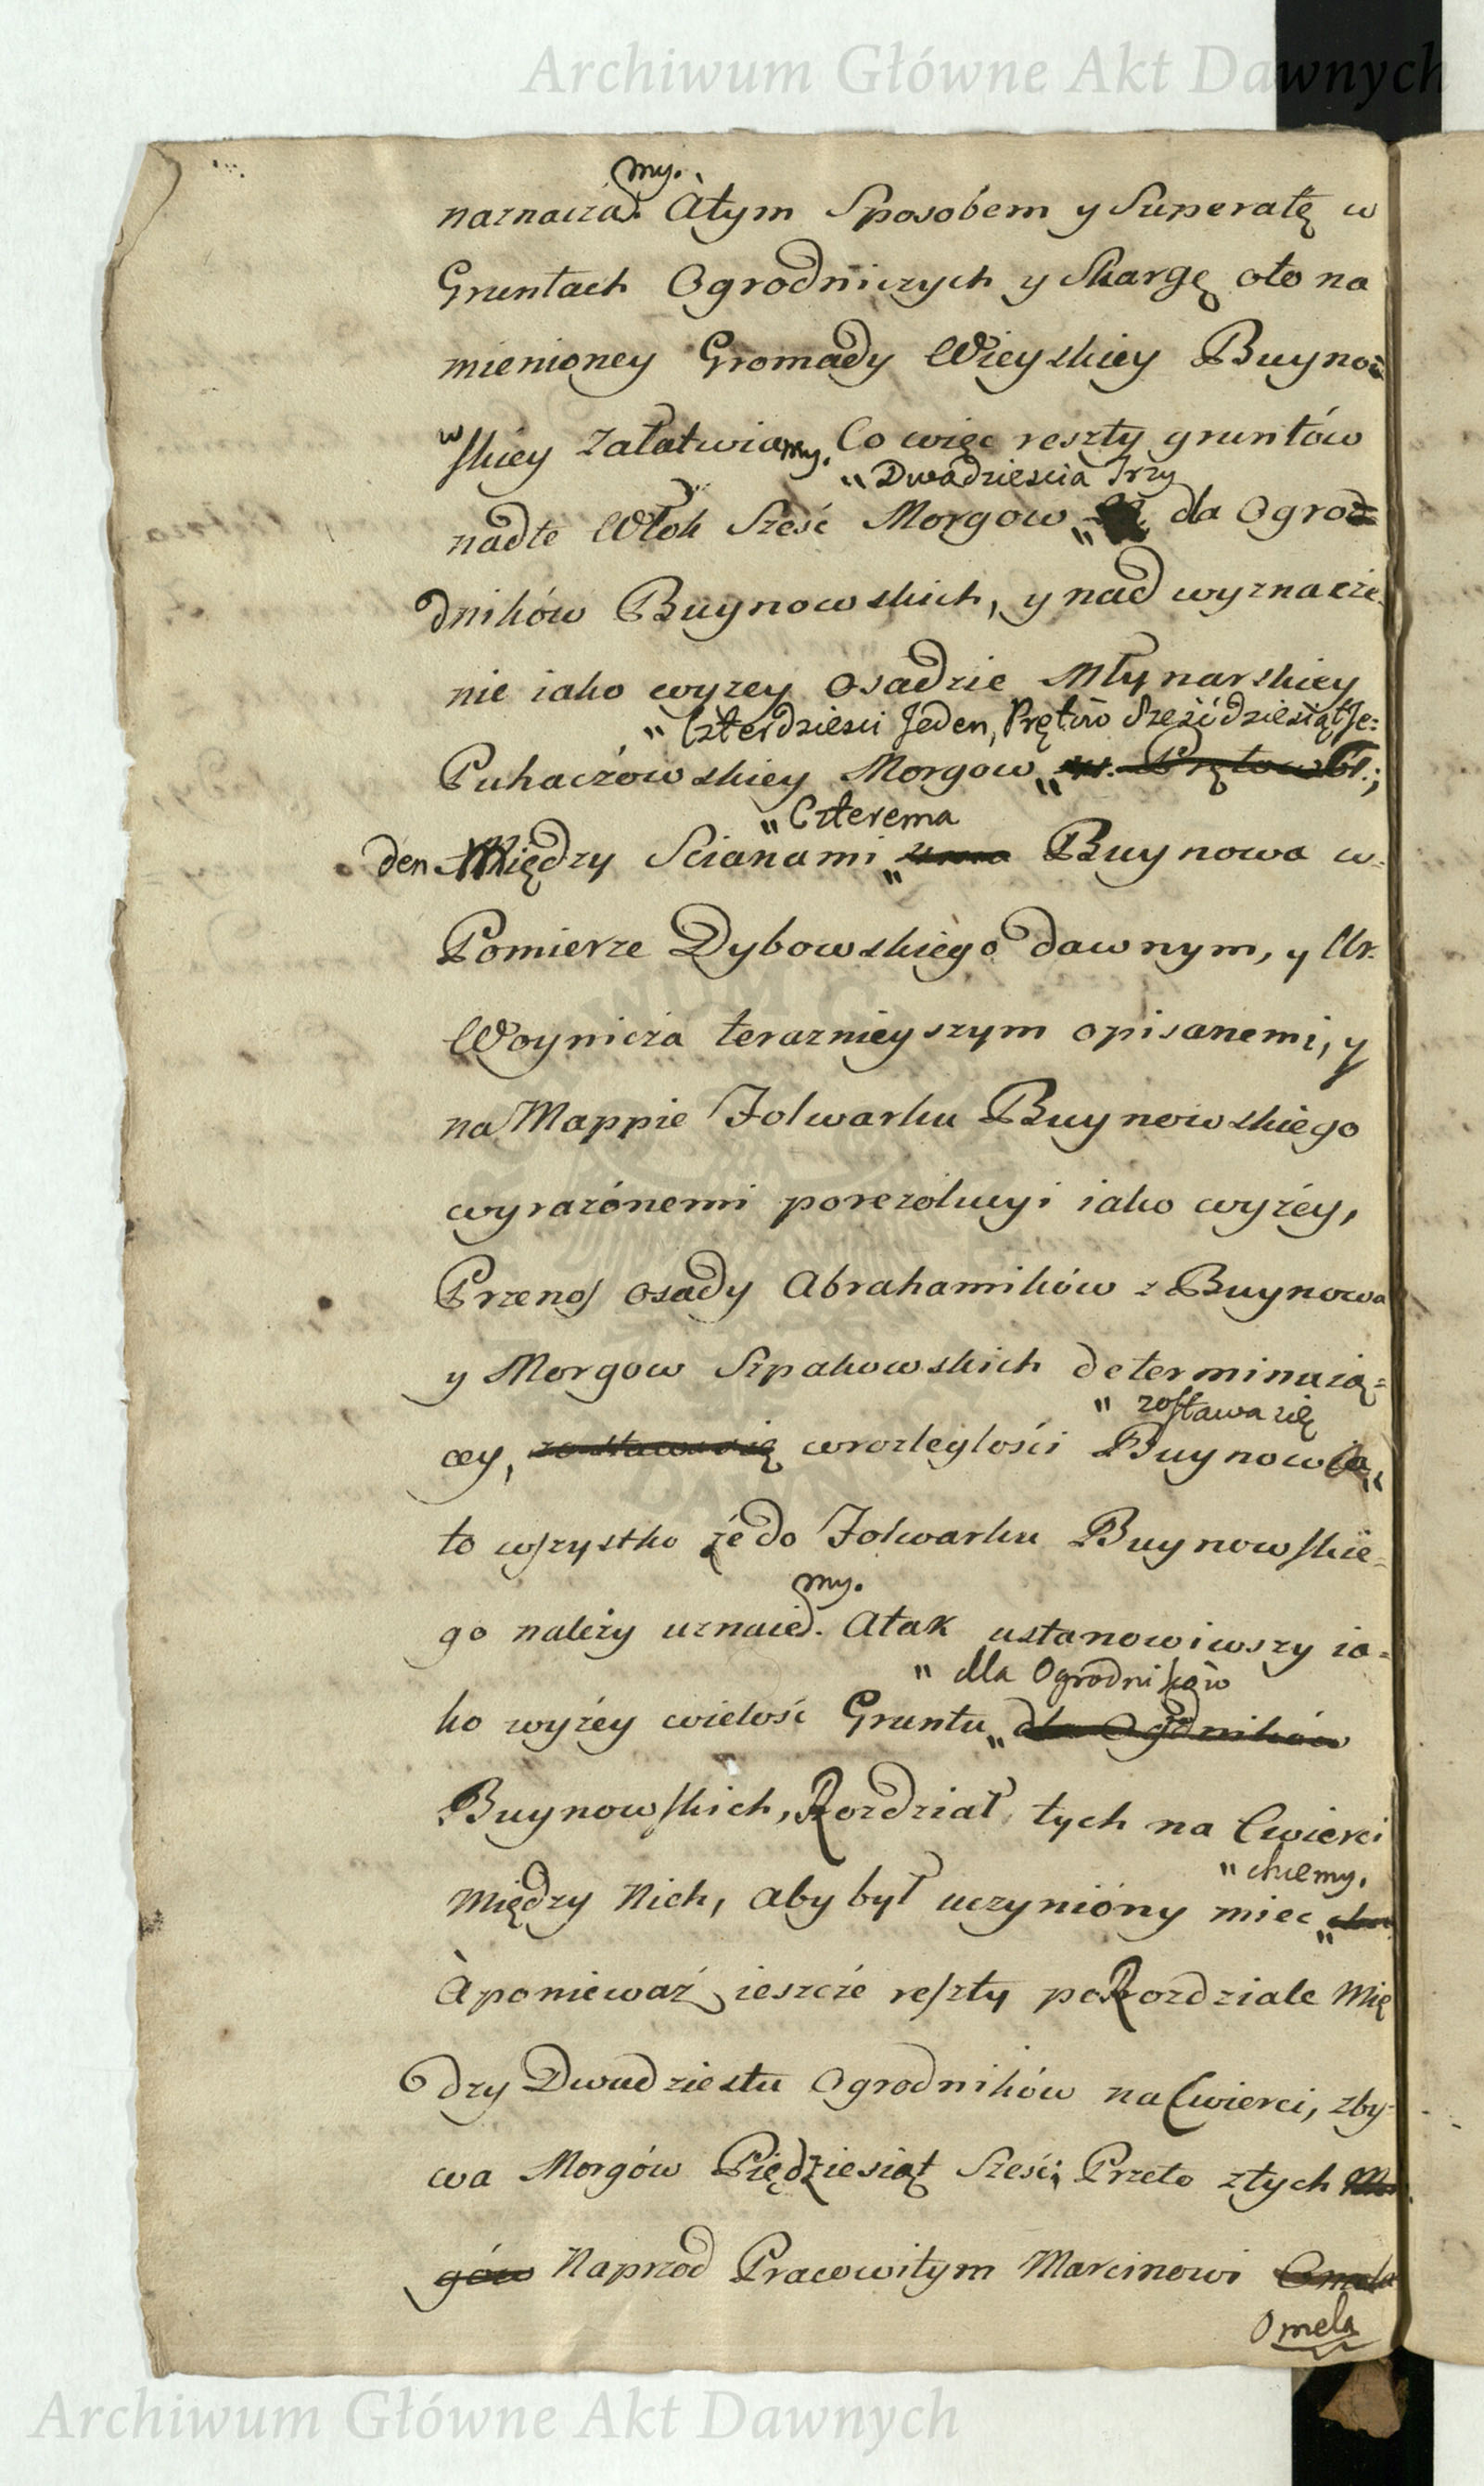 Archiwum Główne Akt Dawnych
my.
naznacza. Atym Sposobem y Superatę w
Gruntach Ogrodniczych y Skargę oto na
mienioney Gromady Wieyskiey Buyno
wskiey załatwiamy. Co więc reszty gruntów
" Dwadziescia Trzy
nadte Włok Sześć Morgow " dla Ogrod
dników Buynowskich, y nad wyznacze
nie iako wyzey Osadzie Młynarskiey
" Czterdziesci Jeden, Prętów Sześćdziesiąt Je:
Puhaczowskiey Morgow " Prętow 61.;
" Czterema
den Między Scianami " Buynowa w
Pomierze Dybowskiego dawnym, y Ur.
Woynicza teraznieyszym opisanemi, y
na Mappie Folwarku Buynowskiego
wyrażónemi porezolucyi iako wyźey,
Przenos osady Abrahamików z Buynowa
y Morgow Szpakowskich determinuią=
" zostawa się
cey, zostawa się wrozległości Buynowa "
to wszystko źe do Folwarku Buynowskie=
my.
go należy uznaie. Atak ustanowiwszy ia=
" dla Ogrodników
ko wyźey wielość Gruntu " dla Ogdników
Buynowskich, Rozdział tych na Cwierci
" chcemy.
Między Nich, aby był uczynióny miec "
Aponieważ ieszcźe reszty poRozdziale Mię
dzy Dwudziestu Ogrodników na Cwierci, zby-
wa Morgów Piędziesiąt Sześć; Przeto ztych Mor
gów Naprzod Pracowitym Marcinowi Omela
Omela
Archiwum Główne Akt Dawnych